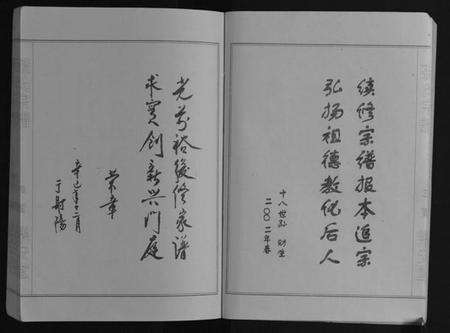 续修宗谱报本追宗
弘扬祖德教化后人
十八世孙
二〇〇二年春
光前裕後修家谱
求实创新兴门庭
荣章
辛巳年十二月
于射阳